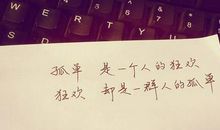 孤单 是一个人的狂欢
狂欢 却是一群人的孤单